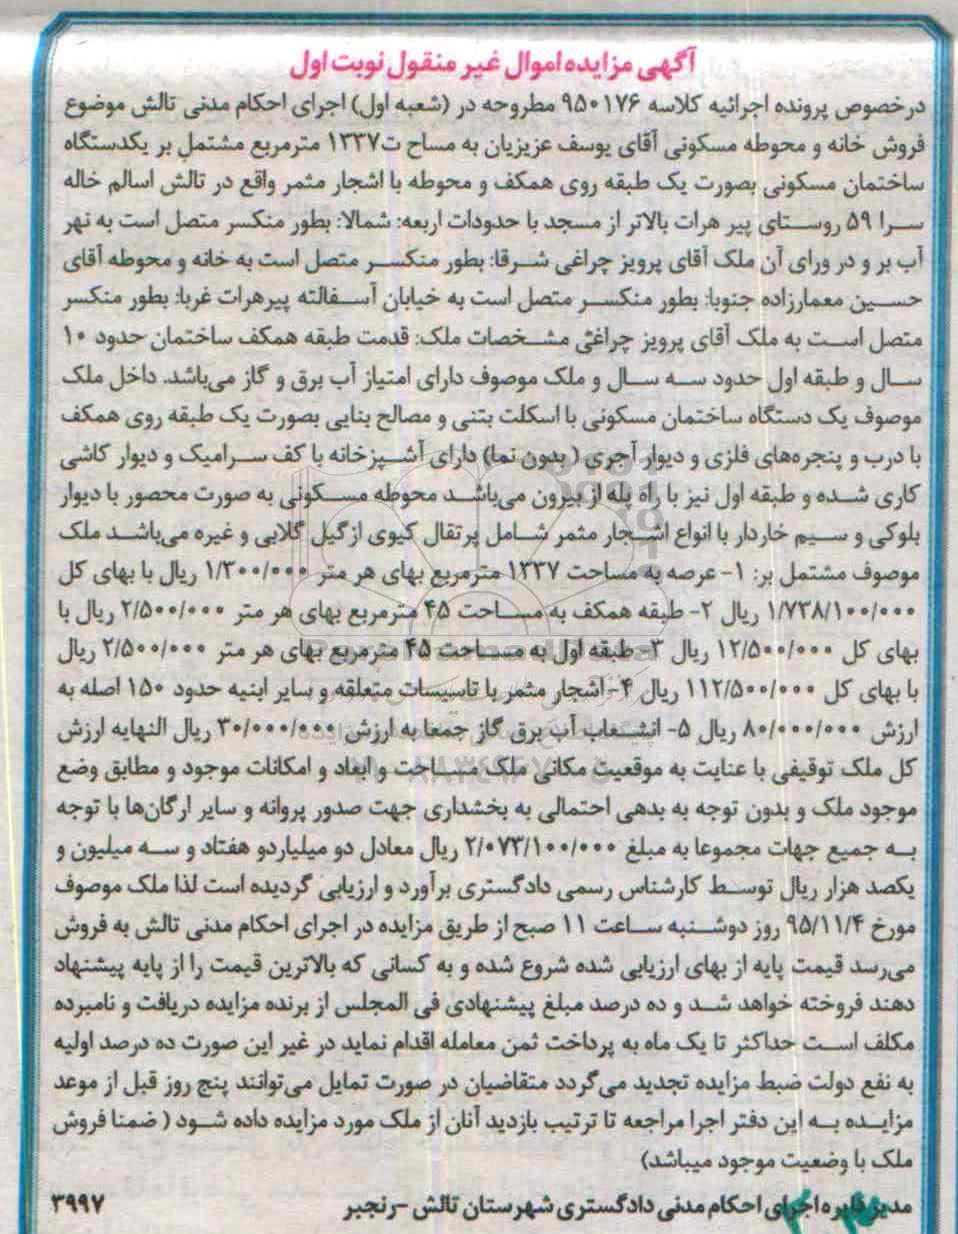 آگهی مزایده اموال غیر منقول نوبت اول
درخصوص پرونده اجرائیه کلاسه ۹۵۰۱۷۶ مطروحه در (شعبه اول) اجرای احکام مدنی تالش موضوع
فروش خانه و محوطه مسکونی آقای یوسف عزیزیان به مساح ت۱۳۳۷ مترمربع مشتمل بر یکدستگاه
ساختمان مسکونی بصورت یک طبقه روی همکف و محوطه با اشجار مثمر واقع در تالش اسالم خاله
سرا ۵۹ روستای پیر هرات بالاتر از مسجد با حدودات اربعه: شمالا: بطور منکسر متصل است به نهر
آب بر و در ورای آن ملک آقای پرویز چراغی شرقا: بطور منکسر متصل است به خانه و محوطه آقای
حسین معمارزاده جنوبا: بطور منکسر متصل است به خیابان آسفالته پیرهرات غربا: بطور منکسر
متصل است به ملک آقای پرویز چراغی مشخصات ملک: قدمت طبقه همکف ساختمان حدود ۱۰
سال و طبقه اول حدود سه سال و ملک موصوف دارای امتیاز آب برق و گاز می‌باشد. داخل ملک
موصوف یک دستگاه ساختمان مسکونی با اسکلت بتنی و مصالح بنایی بصورت یک طبقه روی همکف
با درب و پنجره‌های فلزی و دیوار آجری ( بدون نما) دارای آشپزخانه با کف سرامیک و دیوار کاشی
کاری شده و طبقه اول نیز با راه پله از بیرون می‌باشد محوطه مسکونی به صورت محصور با دیوار
بلوکی و سیم خاردار با انواع اشجار مثمر شامل پرتقال کیوی ازگیل گلابی و غیره می‌باشد ملک
موصوف مشتمل بر: ۱- عرصه به مساحت ۱۳۳۷ مترمربع بهای هر متر ۱/۳۰۰/۰۰۰ ریال با بهای کل
۱/۷۳۸/۱۰۰/۰۰۰ ریال ۲- طبقه همکف به مساحت ۴۵ مترمربع بهای هر متر ۲/۵۰۰/۰۰۰ ریال با
بهای کل ۱۲/۵۰۰/۰۰۰ ریال ۳-طبقه اول به مساحت ۴۵ مترمربع بهای هر متر ۲/۵۰۰/۰۰۰ ریال
با بهای کل ۱۱۲/۵۰۰/۰۰۰ ریال ۴- اشجار مثمر با تاسیسات متعلقه و سایر ابنیه حدود ۱۵۰ اصله به
ارزش ۸۰/۰۰۰/۰۰۰ ریال ۵- انشعاب آب برق گاز جمعا به ارزش ۳۰/۰۰۰/۰۰۰ ریال النهایه ارزش
کل ملک توقیفی با عنایت به موقعیت مکانی ملک مساحت و ابعاد و امکانات موجود و مطابق وضع
موجود ملک و بدون توجه به بدهی احتمالی به بخشداری جهت صدور پروانه و سایر ارگان‌ها با توجه
به جمیع جهات مجموعا به مبلغ ۲/۰۷۳/۱۰۰/۰۰۰ ریال معادل دو میلیاردو هفتاد و سه میلیون و
یکصد هزار ریال توسط کارشناس رسمی دادگستری برآورد و ارزیابی گردیده است لذا ملک موصوف
مورخ ۹۵/۱۱/۴ روز دوشنبه ساعت ۱۱ صبح از طریق مزایده در اجرای احکام مدنی تالش به فروش
می‌رسد قیمت پایه از بهای ارزیابی شده شروع شده و به کسانی که بالاترین قیمت را از پایه پیشنهاد
دهند فروخته خواهد شد و ده درصد مبلغ پیشنهادی فی المجلس از برنده مزایده دریافت و نامبرده
مکلف است حداکثر تا یک ماه به پرداخت ثمن معامله اقدام نماید در غیر این صورت ده درصد اولیه
به نفع دولت ضبط مزایده تجدید می‌گردد متقاضیان در صورت تمایل می‌توانند پنج روز قبل از موعد
مزایده به این دفتر اجرا مراجعه تا ترتیب بازدید آنان از ملک مورد مزایده داده شود ( ضمنا فروش
ملک با وضعیت موجود میباشد)
مدیر دایره اجرای احکام مدنی دادگستری شهرستان تالش -رنجبر
۳۹۹۷